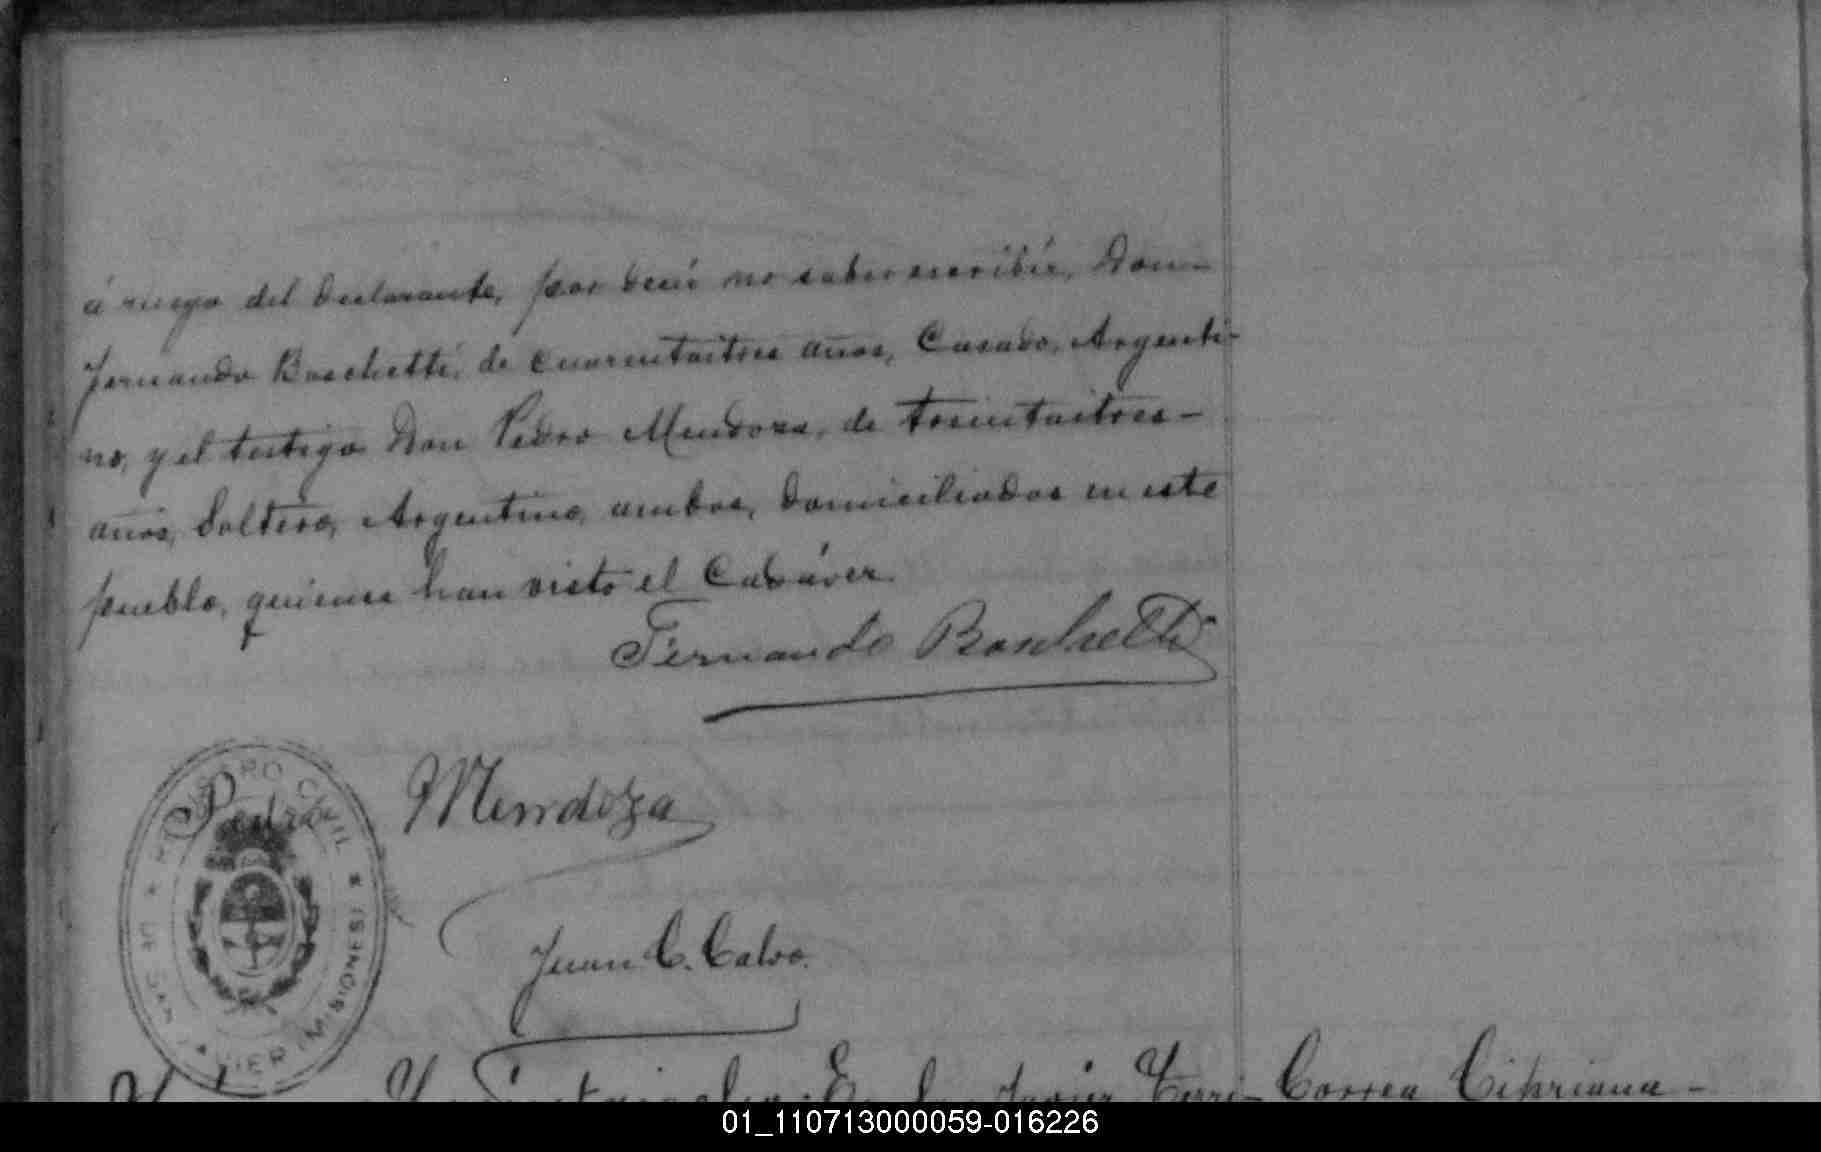 á ruego del declarante, por decir no saber escribir, Don-
Fernando Boschetti, de cuarentaitres años, Casado, Argenti-
no, y el testigo Don Pedro Mendoza, de treintaitres-
años, Soltero, Argentino, ambos, domiciliados en este
pueblo, quienes han visto el Cadáver.
Fernando Boschetti
Pedro Mendoza
REGISTRO CIVIL
DE SAN JAVIER (MISIONES)
Juan C. Calvo.
En San Javier, Terri-
Correa Cipriana-
01_110713000059-016226